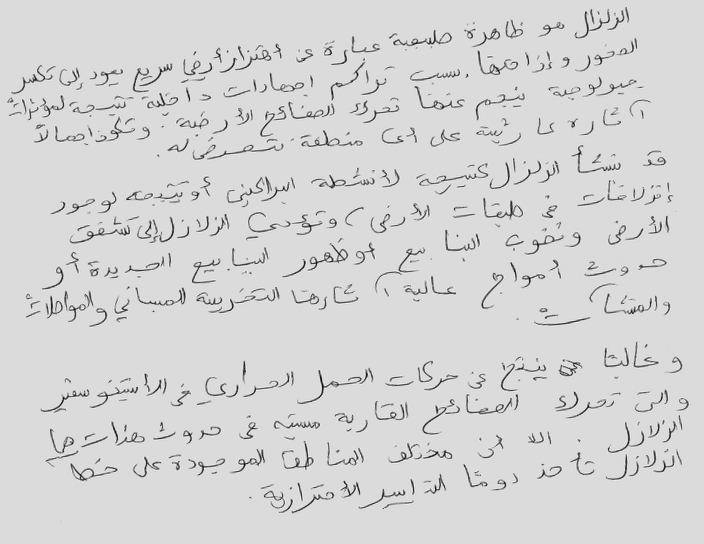 الزلزال هو ظاهرة طبيعية عبارة عن أهتزاز أرضي سريع يعود إلى تكسر
الصخور وإزاحتها بسبب تراكم اجهادات داخلية نتيجة لمؤثرات
جيولوجية ينجم عنها تحرك الصفائح الأرضية. وتكون اجمالاً
آثاره كارثية على أي منطقة تتعرض له.
قد ينشأ الزلزال كنتيجة لأنشطة البراكين أو نتيجة لوجود
إنزلاقات في طبقات الأرض، وتؤدي الزلازل إلى تشقق
الأرض ونضوب الينابيع أو ظهور الينابيع الجديدة أو
حدوث أمواج عالية، آثارها التخريبية للمباني والمواصلات
والمنشآت.
و غالبًا ينتج عن حركات الحمل الحراري في الأستينوسفير
والتي تحرك الصفائح القارية مسببة في حدوث هزات هي
الزلازل. الا أن مختلف المناطق الموجودة على خط
الزلازل تأخذ دومًا التدابير الأحترازية.